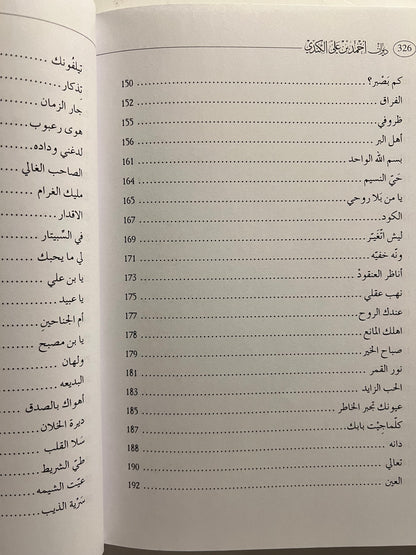 326 ديوان أحمد بن علي الكندي
كم بَصْبر؟ 150
الفراق 152
ظروفي 155
أهل البر 156
بسم الله الواحد 161
حَيّ النسيم 164
يا من بَلا روحي 165
الكود.
ليش اتْغيّر 169
ونّه خفيّه 171
أناظر العنقودْ 173
نهب عقلي 175
عندك الروح 177
اهلك المانع 178
صباح الخير 179
نور القمر 180
الحب الزايد 183
عيونك تجبر الخاطر 185
كلّما جيْت بابك 187
دانه 188
تعالي 190
العين 192
تيلفُونك
تِذكار
جَار الزمان
هوى رعبوب
لدغني وداده
الصاحب الغالي
مليك الغرام
الاقدار
في السِّبيتار
لي ما يحبك
يا بن علي
يا عبيد
أم الجناحين
يا بن مصبح
ولهان
البديعه
أهواك بالصدق
ديرة الخلان
سَلا القلب
طيّ الشريط
عيّت الشيمه
سَرْية الذيب